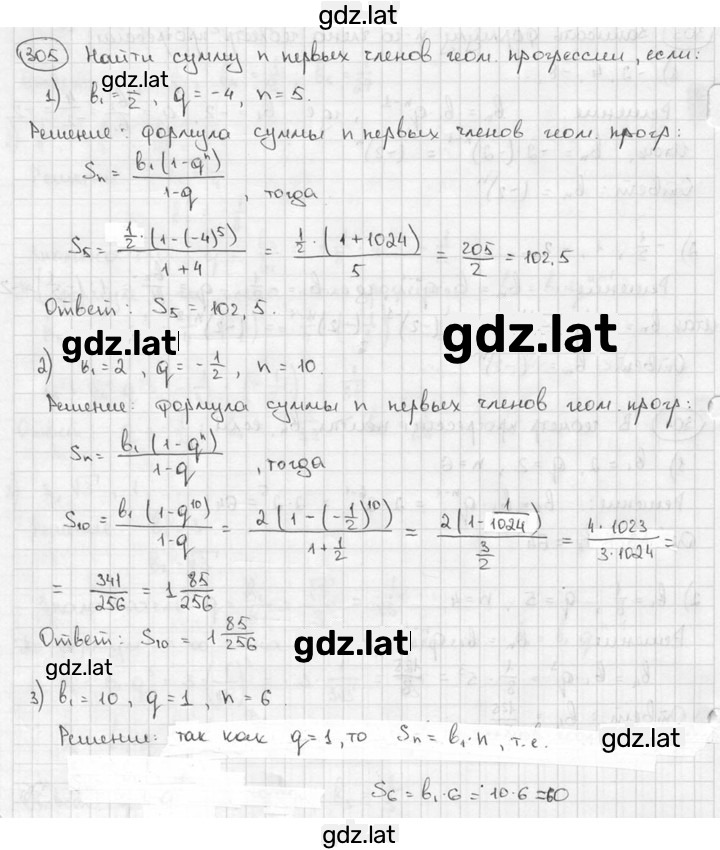 gdz.lat
305 Найти сумму n первых членов геом. прогрессии, если:
gdz.lat
1) b₁ = 1/2, q = -4, n = 5.
Решение: формула суммы n первых членов геом. прогр:
Sₙ = b₁(1-qⁿ)/(1-q), тогда
S₅ = 1/2·(1-(-4)⁵)/(1+4) = 1/2·(1+1024)/5 = 205/2 = 102,5
Ответ: S₅ = 102,5.
gdz.lat
gdz.lat
2) b₁ = 2, q = -1/2, n = 10.
Решение: формула суммы n первых членов геом. прогр:
Sₙ = b₁(1-qⁿ)/(1-q), тогда
S₁₀ = b₁(1-q¹⁰)/(1-q) = 2(1-(-1/2)¹⁰)/(1+1/2) = 2(1-1/1024)/(3/2) = 4·1023/(3·1024) =
= 341/256 = 1 85/256
Ответ: S₁₀ = 1 85/256
gdz.lat
gdz.lat
3) b₁ = 10, q = 1, n = 6.
Решение: так как q = 1, то Sₙ = b₁·n, т.е.
gdz.lat
S₆ = b₁·6 = 10·6 = 60
gdz.lat